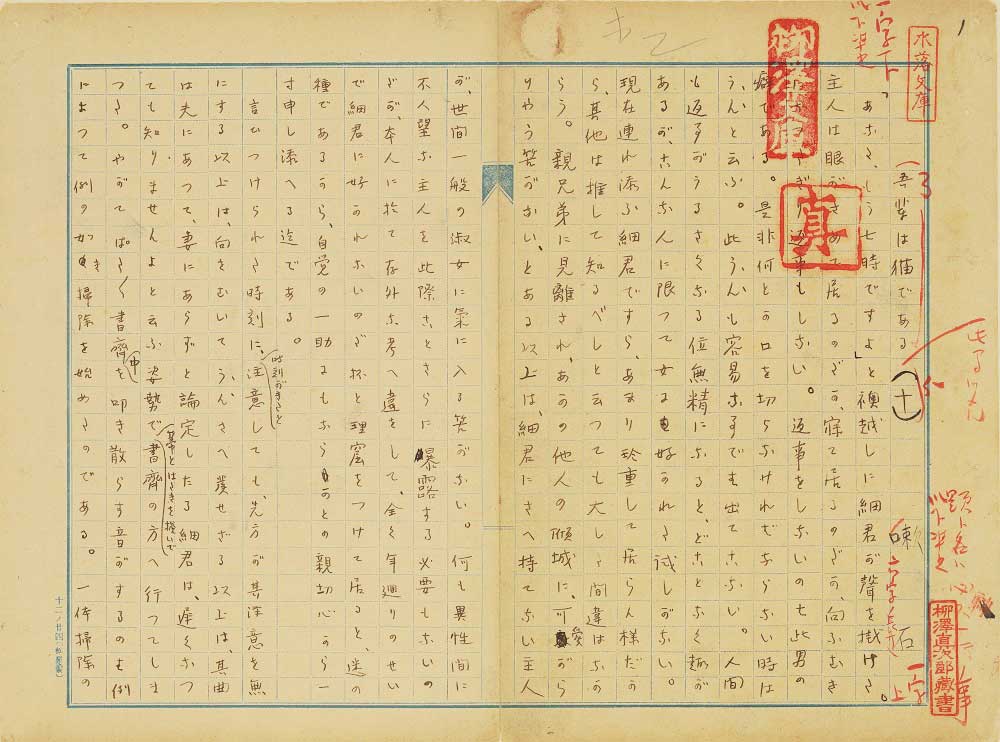 1
水落文庫
一字下ル
以下準之
吾輩は猫である（十）
漱石
「あなた、もう七時ですよ」と襖越しに細君が聲を掛けた。
主人は眼がさめて居るのだか、寐て居るのだか、向ふむき
になつたぎり返事もしない。返事をしないのは此男の
癖である。是非何とか口を切らなければならない時は
うんと云ふ。此うんも容易な事では出てこない。人間
も返事がうるさくなる位無精になると、どことなく趣が
あるが、こんな人に限つて女に好かれた試しがない。
現在連れ添ふ細君ですら、あまり珍重して居らん様だか
ら、其他は推して知るべしと云つても大した間違はなか
らう。親兄弟に見離され、あかの他人の傾城に、可愛がら
りやう筈がない、とある以上は、細君にさへ持てない主人
が、世間一般の淑女に氣に入る筈がない。何も異性間に
不人望な主人を此際ことさらに暴露する必要もないの
だが、本人に於て存外な考へ違をして、全く年廻りのせい
で細君に好かれないのだ抔と理窟をつけて居ると、迷の
種であるから、自覚の一助にもならうかとの親切心から一
寸申し添へる迄である。
言ひつけられた時刻に、時刻がきたと注意しても、先方が其注意を無
にする以上は、向をむいてうんさへ發せざる以上は、其曲
は夫にあつて、妻にあらずと論定したる細君は、遅くなつ
ても知りませんよと云ふ姿勢で箒とはたきを擔いで書齋の方へ行つてしま
つた。やがてぱた〱書齋中を叩き散らす音がするのは例
によつて例の如き掃除を始めたのである。一体掃除の
柳澤直次郎藏書
真